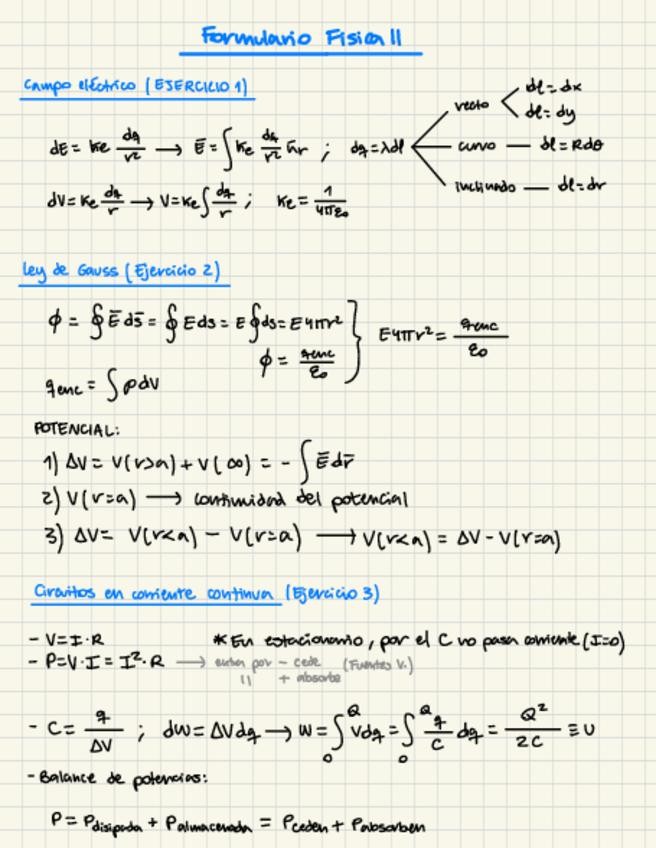 Formulario Física II
Campo eléctrico (EJERCICIO 1)
dE = Ke dq/r² → Ē = ∫ Ke dq/r² ūr ; dq = λdl
recto dl = dx
dl = dy
curvo — dl = Rdθ
inclinado — dl = dr
dV = Ke dq/r → V = Ke ∫ dq/r ; Ke = 1/4πε₀
Ley de Gauss (Ejercicio 2)
ϕ = ∮ Ē ds̄ = ∮ E ds = E ∮ ds = E4πr²
ϕ = qenc/ε₀
E4πr² = qenc/ε₀
qenc = ∫ ρdV
POTENCIAL:
1) ΔV = V(r>a) + V(∞) = - ∫ Ē dr̄
2) V(r=a) → continuidad del potencial
3) ΔV = V(r<a) - V(r=a) → V(r<a) = ΔV - V(r=a)
Circuitos en corriente continua (Ejercicio 3)
- V = I · R
*En estacionario, por el C no pasa corriente (I=0)
- P = V · I = I² · R → entra por - cede (Fuentes V.)
" + absorbe
- C = q/ΔV ; dW = ΔVdq → W = ∫₀^Q Vdq = ∫₀^Q q/C dq = Q²/2C ≡ U
- Balance de potencias:
P = Pdisipada + Palmacenada = Pceden + Pabsorben